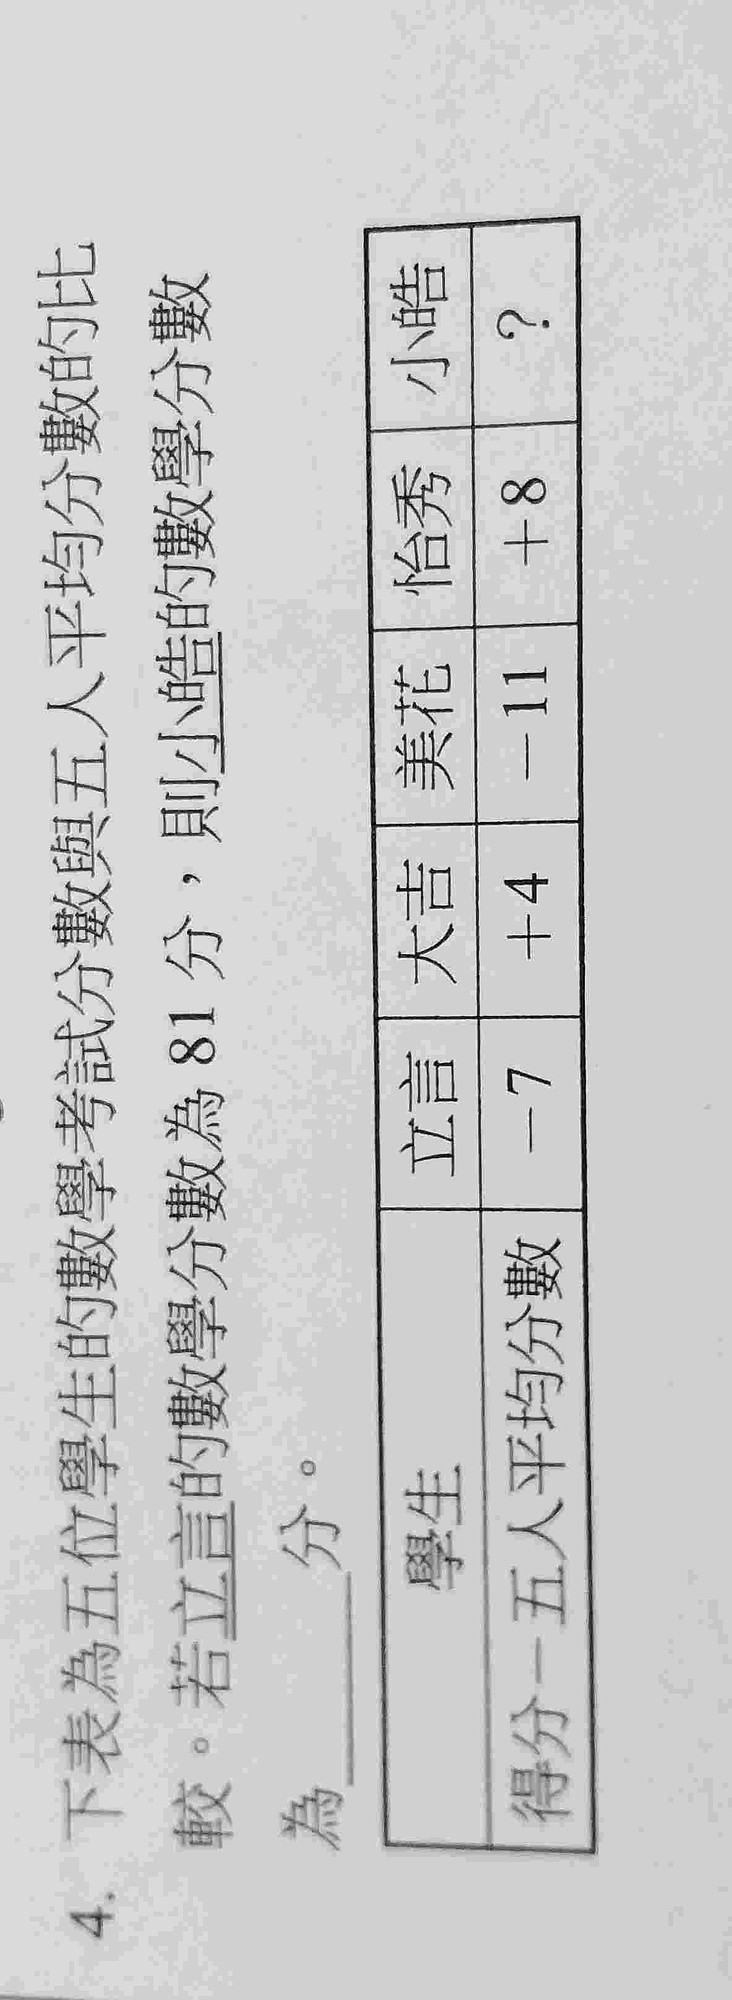 4. 下表為五位學生的數學考試分數與五人平均分數的比
較。若立言的數學分數為 81 分，則小皓的數學分數
為______分。
學生 立言 大吉 美花 怡秀 小皓
得分－五人平均分數 －7 ＋4 －11 ＋8 ？